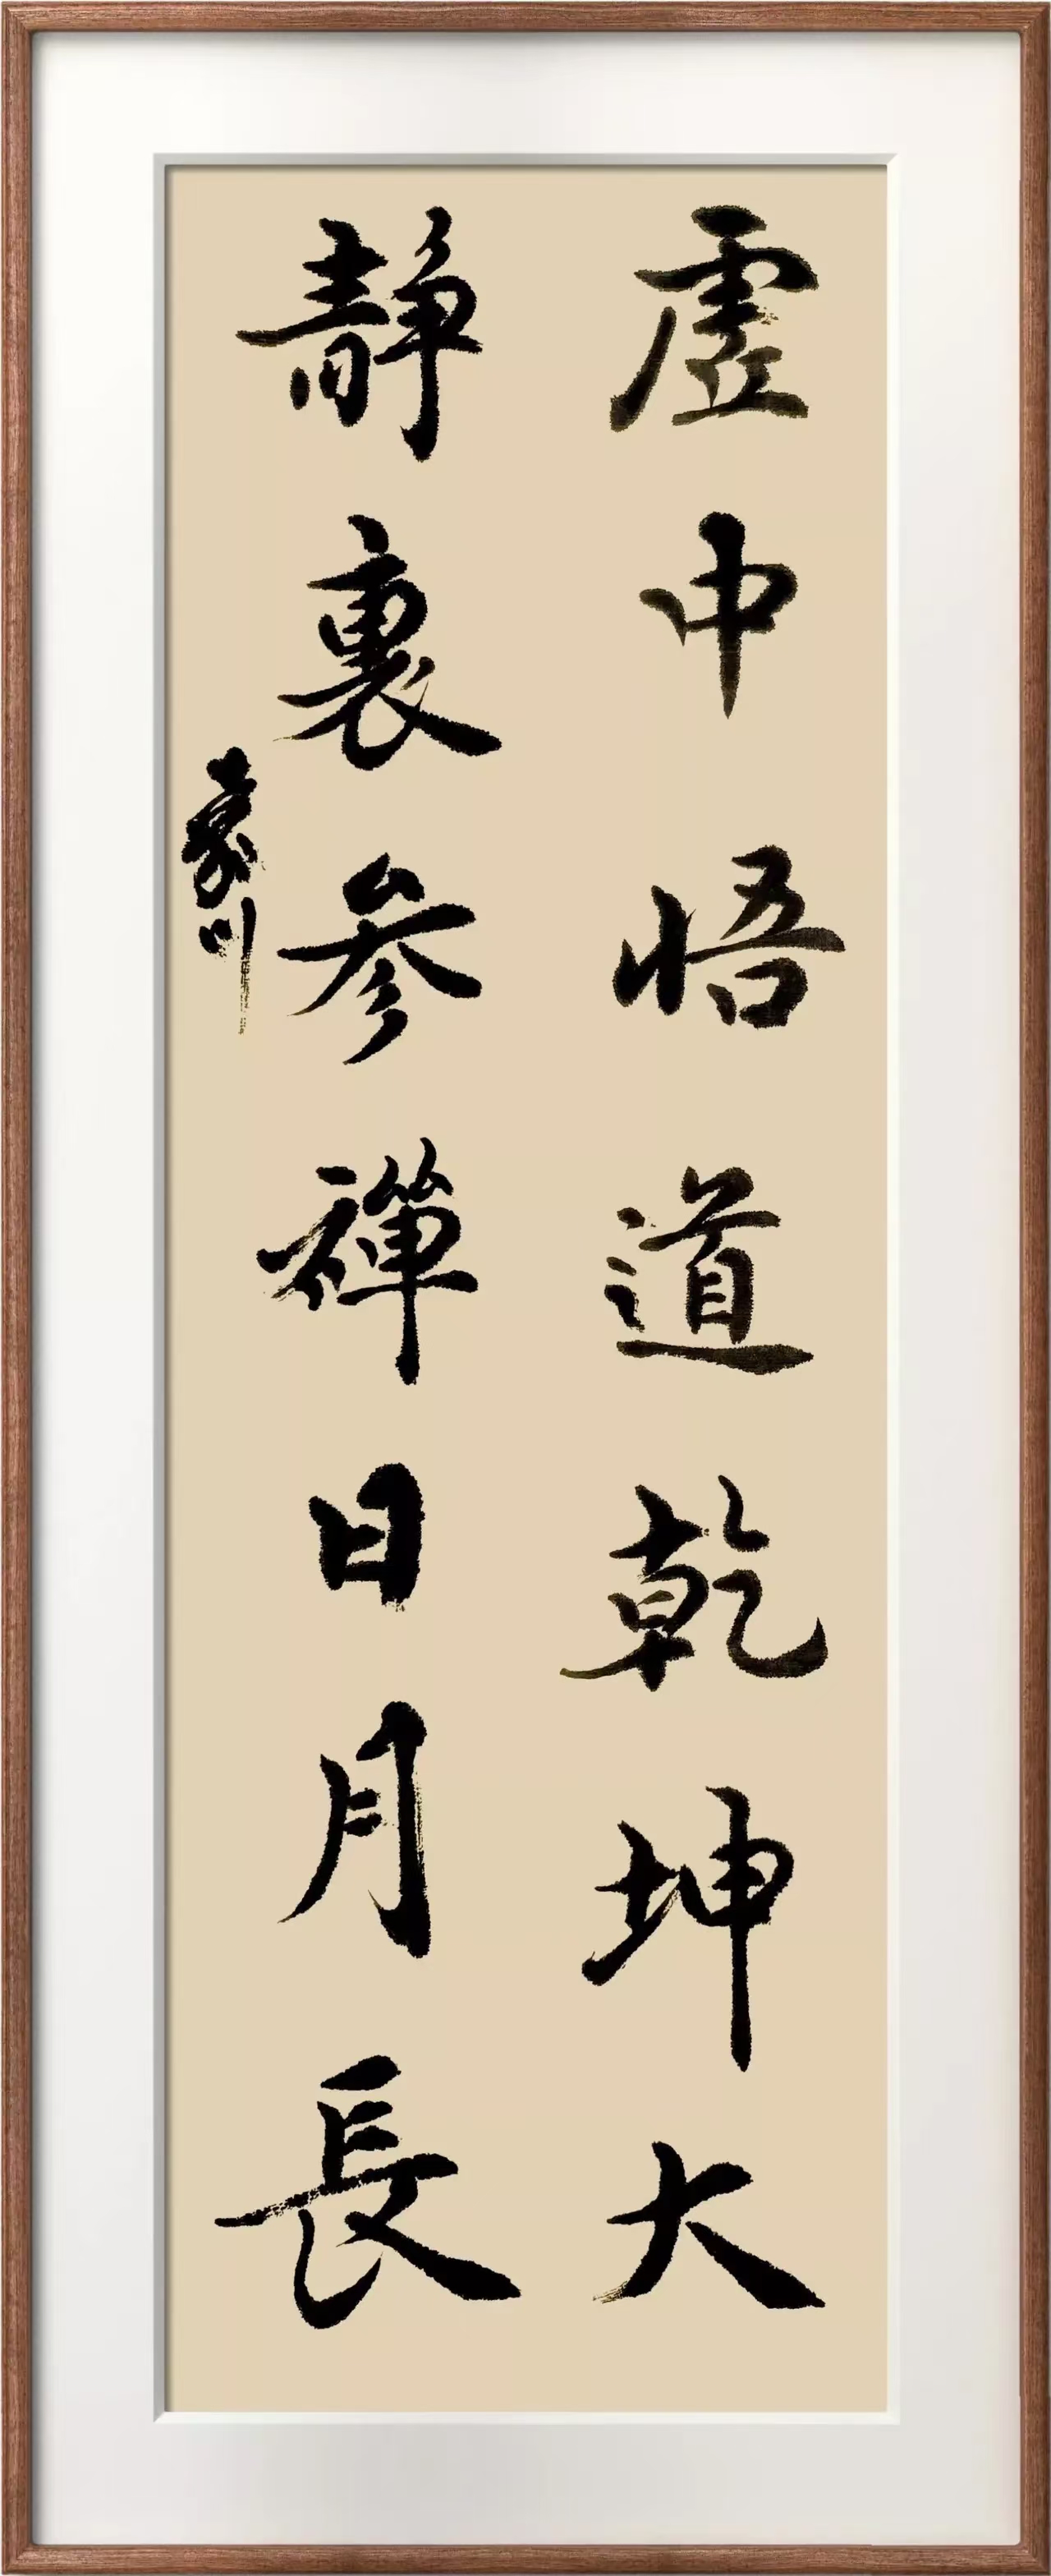 虛中悟道乾坤大
靜裏參禪日月長
豪川